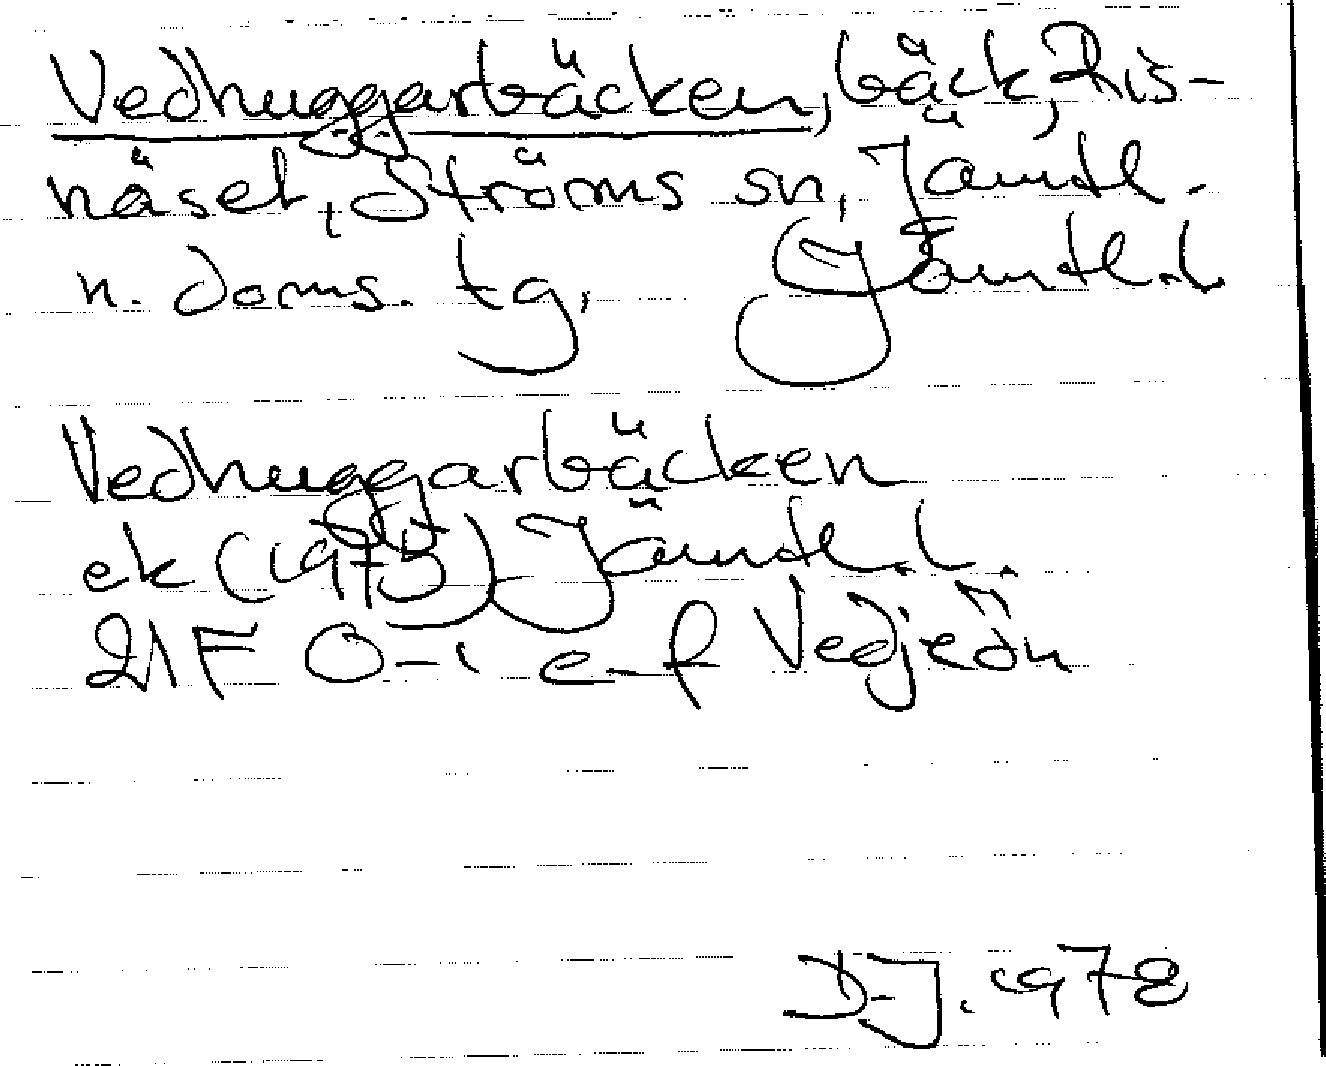 Vedhuggarbäcken, bäck, Ris-
näset, Ströms sn, Jämtl.
n. doms. tg, Jämtl.l.
Vedhuggarbäcken
ek (1975) Jämtl.l.
21F 0-1 e-f Vedjeön
D-J. 1978